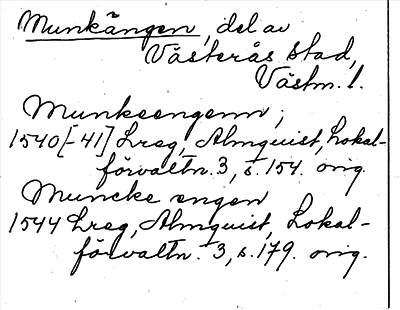 Munkängen, del av
Västerås stad,
Västm. l.
Munksengenn;
1540[-41] Lreg, Almquist, Lokal-
förvaltn. 3, s. 154. orig.
Muncke engen
1544 Lreg, Almquist, Lokal-
förvaltn. 3, s. 179. orig.